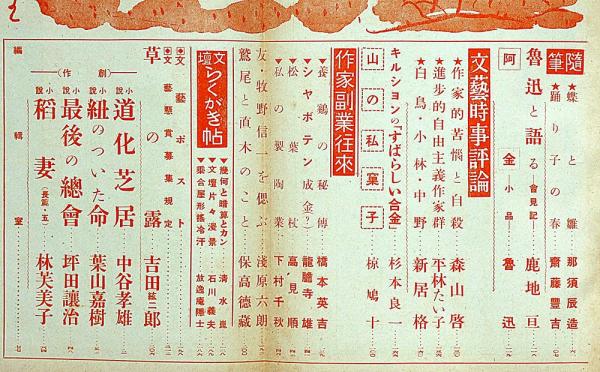 隨筆
★蝶と雛 那須辰造
★踊り子の春 齋藤豐吉
魯迅と語る 會見記 鹿地亘
阿金 小品 魯迅
文藝時事評論
★作家的苦惱と自殺 森山啓
★進步的自由主義作家群 平林たい子
★白鳥・小林・中野 新居格
キルションの「すばらしい合金」 杉本良一
山の私窠子 椋鳩十
作家副業往來
★養鷄の秘傳 橋本英吉
★シャボテン成金(?) 龍膽寺雄
★松葉杖 高見順
★私の製陶業 下村千秋
友・牧野信一を偲ぶ 淺原六朗
鷲尾と直木のこと 保高德藏
文壇らくがき帖
▼幾何と暗算とカン 清水崑
▼文壇片々漫景 石川義夫
▼乘合屋形搖冷汗 放逸庵隱士
◆文藝ポスト
◆文藝懸賞募集規定
草の露 吉田絃二郎
(創作)
小說 道化芝居 中谷孝雄
小說 紐のついた命 葉山嘉樹
小說 最後の總會 坪田讓治
小說 稻妻 (長篇・五) 林芙美子
編輯室